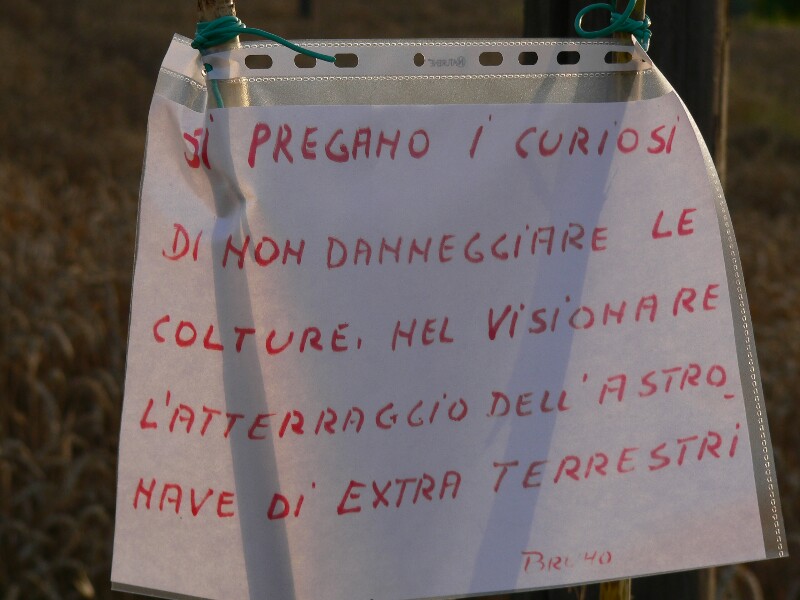 SI PREGANO I CURIOSI
DI NON DANNEGGIARE LE
COLTURE, NEL VISIONARE
L'ATTERRAGGIO DELL'ASTRO_
NAVE DI EXTRA TERRESTRI
BRUNO